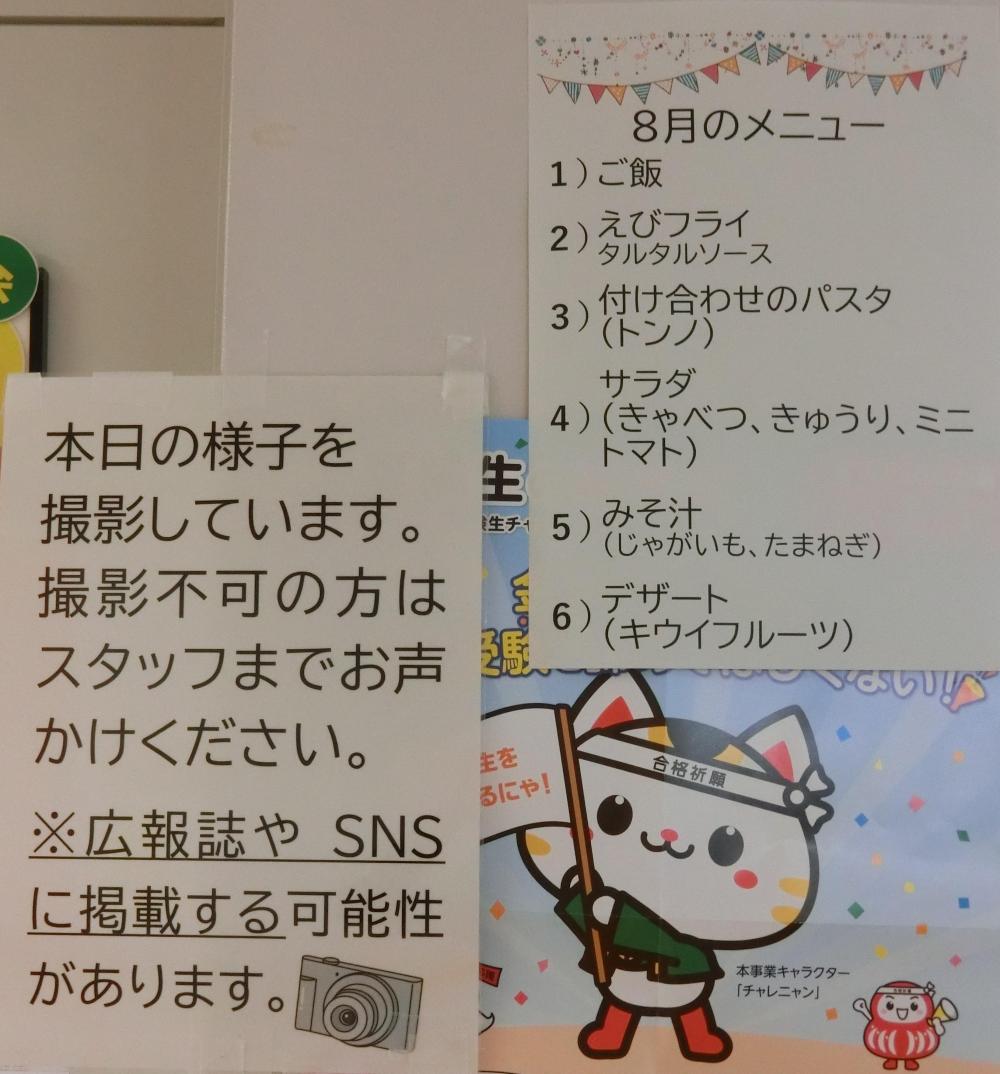 本日の様子を
撮影しています。
撮影不可の方は
スタッフまでお声
かけください。
※広報誌や SNS
に掲載する可能性
があります。
8月のメニュー
1）ご飯
2）えびフライ
タルタルソース
3）付け合わせのパスタ
（トンノ）
4）サラダ
（きゃべつ、きゅうり、ミニ
トマト）
5）みそ汁
（じゃがいも、たまねぎ）
6）デザート
（キウイフルーツ）
生
験生チャ
受験
ない!!
合格祈願
生を
るにゃ!
本事業キャラクター
「チャレニャン」